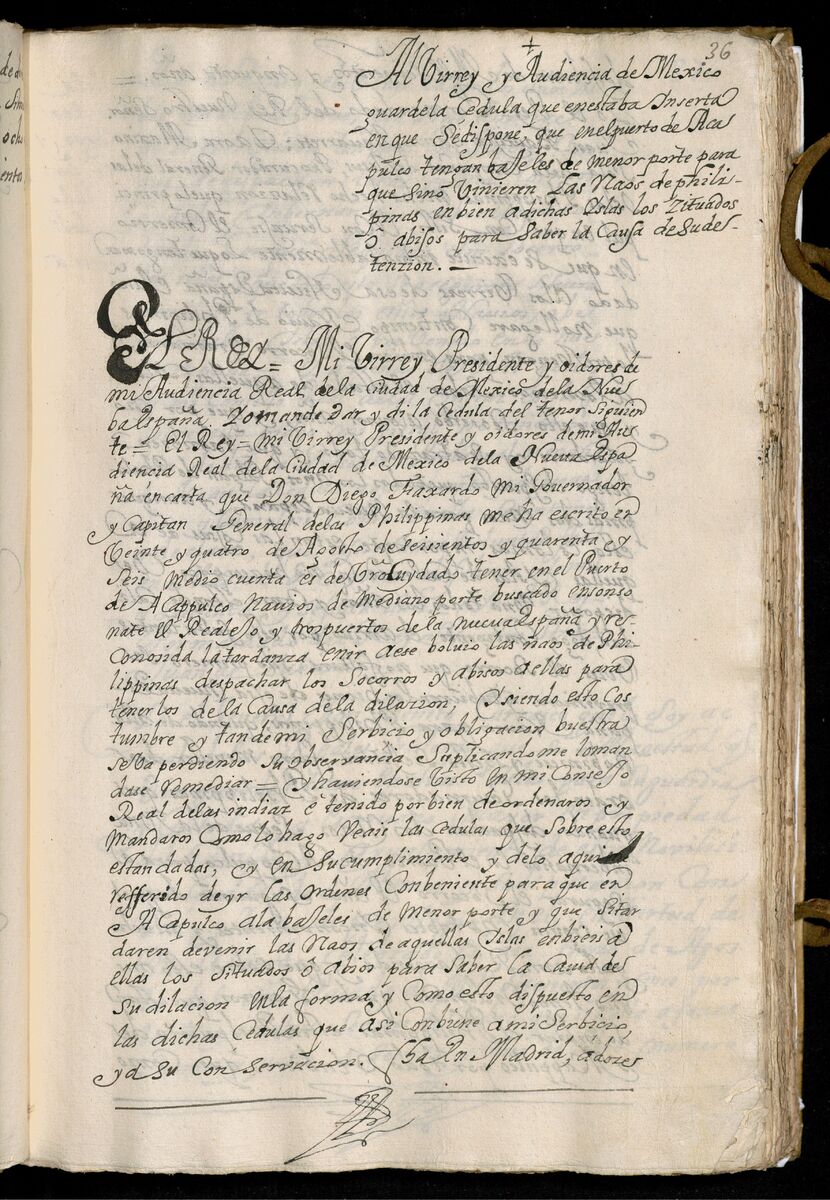 36
Al Virrey y Audiencia de Mexico
guardela Cedula que enestaba Inserta
en que Sedispone, que enelpuerto de Aca
pulco tengan baseles de menor porte para
que sino Vinieren Las Naos de phili-
pinas enbien adichas Islas los Zituados
ô abisos para Saber la Causa de Sudes-
tenzion.
El Rey = Mi Virrey Presidente y oidores de
mi Audiencia Real dela Ciudad de Mexico dela Nue
ba España. Yo mande Dar y di la Cedula del tenor Siguien
te = El Rey = mi Virrey Presidente y oidores de mi Au
diencia Real dela Ciudad de Mexico dela Nueva Espa
ña en carta que Don Diego Faxardo mi Governador
y Capitan General delas Philippinas me ha escrito en
Veinte y quatro de Agosto de seisientos y quarenta y
Seis medio cuenta es de Vrõ Cuydado tener en el Puerto
de A Cappulco Navios de Mediano porte buscado enSonso
nate el Realejo, y tros puertos de la nueva España y res-
Conosida la tardanza enir aese boluio las naos de Phi-
lippinas despachar los Socorros y abisos aellas para
tenerlos de la Causa de la dilazion, Y siendo esto Cos
tumbre y tan de mi Serbicio y obligacion buestra
seVa perdiendo Su observancia Suplicando me loman
dase remediar = Y haviendose Visto en mi Consejo
Real delas indias é tenido por bien de ordenaros y
Mandaros Como lo hago Veais las cedulas que Sobre esto
estan dadas, y en Su cumplimiento y delo aqui
refferido deyr las ordenes Conbeniente para que en
A Capulco ala baseles de Menor porte y que Sitar
daren devenir las Naos de aquellas Islas enbieis a
ellas los Situados ô abios para Saber la Causa de
Su dilacion en la forma y Como esto dispuesto en
las dichas Cedulas que asi Conbiene ami Serbicio,
y a Su Conservacion. fha En Madrid, ádozes